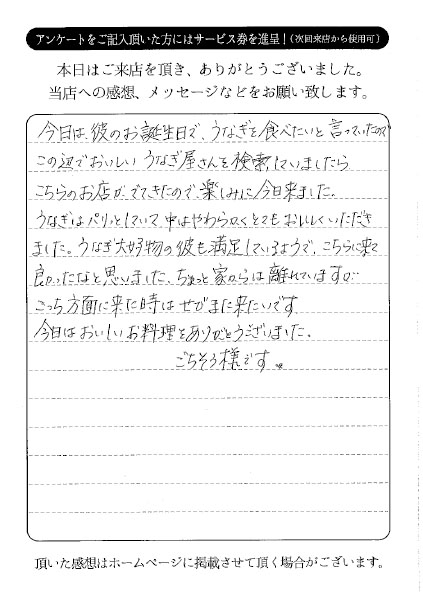 アンケートをご記入頂いた方にはサービス券を進呈！（次回来店から使用可）
本日はご来店を頂き、ありがとうございました。
当店への感想、メッセージなどをお願い致します。
今日は、彼のお誕生日で、うなぎを食べたいと言っていたので
この辺でおいしいうなぎ屋さんを検索していましたら
こちらのお店がでてきたので、楽しみに今日来ました。
うなぎはパリッとしていて中はやわらかくとてもおいしくいただき
ました。うなぎ大好物の彼も満足しているようで、こちらに来て
良かったなと思いました。ちょっと家からは離れていますが…
こっち方面に来た時はぜひまた来たいです
今日はおいしいお料理をありがとうございました。
ごちそう様です。
頂いた感想はホームページに掲載させて頂く場合がございます。